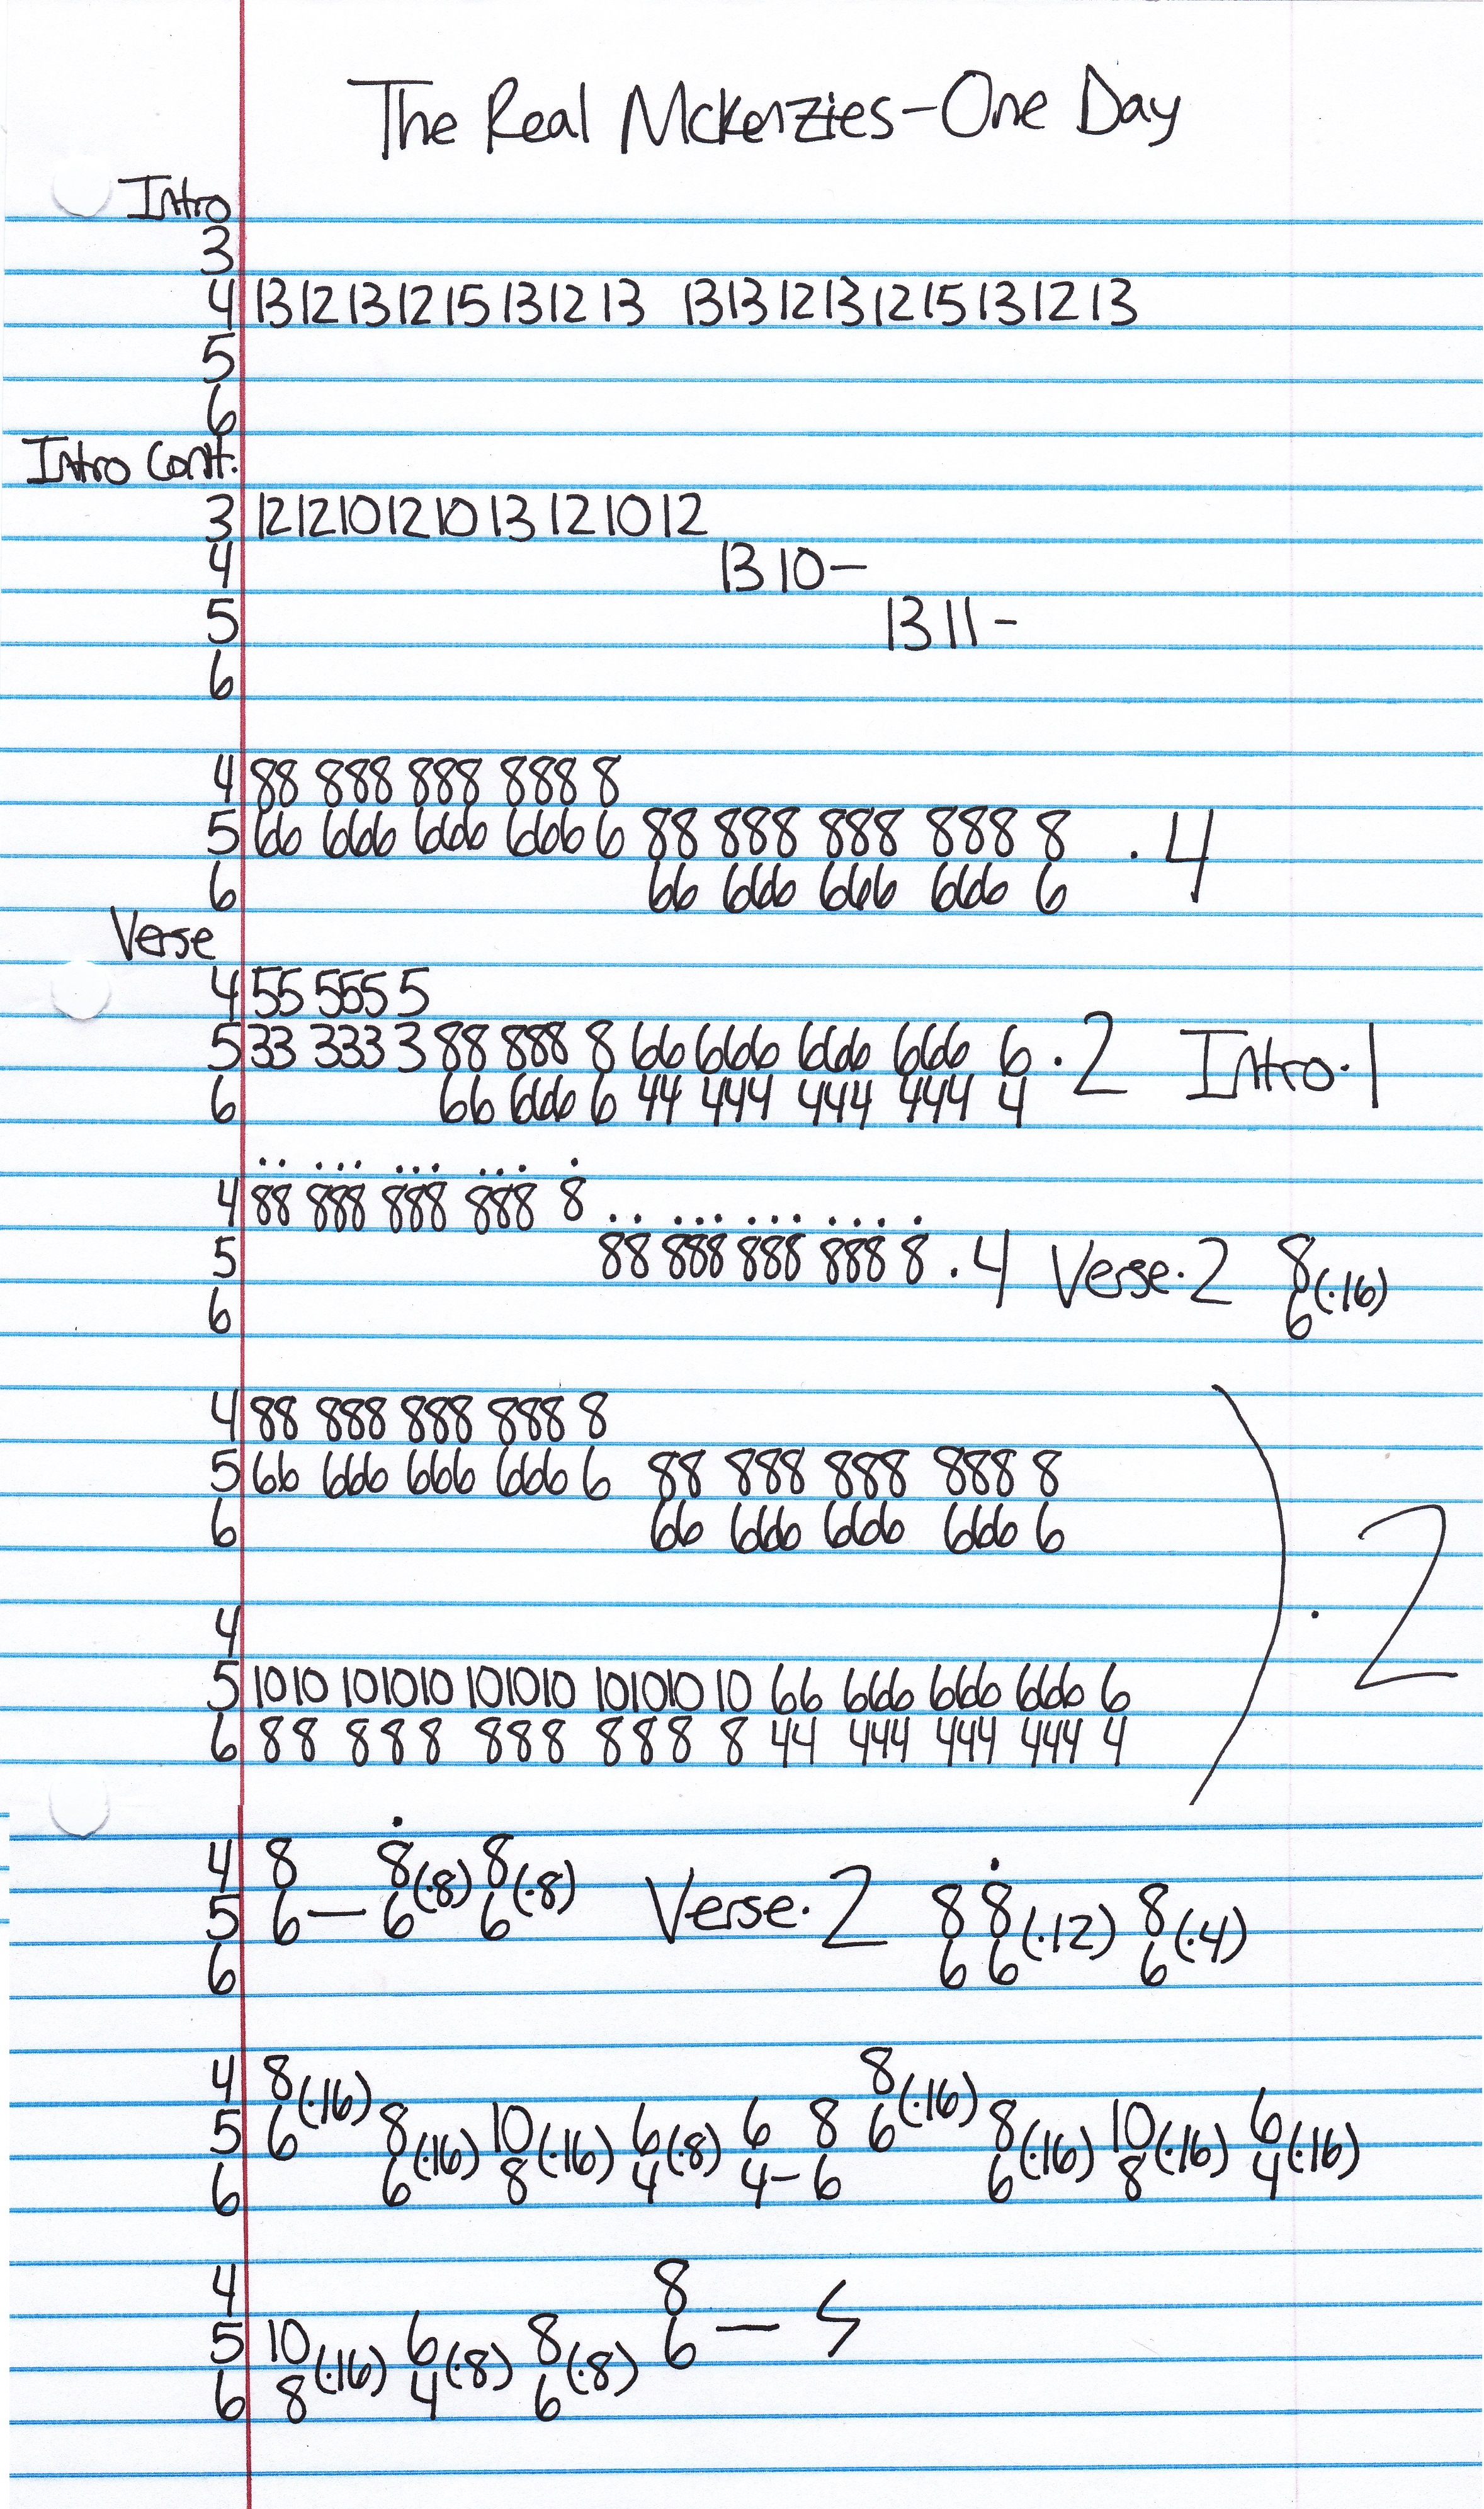 The Real Mckenzies-One Day
Intro
3
4 13 12 13 12 15 13 12 13 13 13 12 13 12 15 13 12 13
5
6
Intro Cont.
3 12 12 10 12 10 13 12 10 12
4 13 10-
5 13 11-
6
4 88 888 888 888 8
5 66 666 666 666 6 88 888 888 888 8 . 4
6 66 666 666 666 6
Verse
4 55 555 5
5 33 333 3 88 888 8 66 666 666 666 6 . 2 Intro.1
6 66 666 6 44 444 444 444 4
.. ... ... ... .
4 88 888 888 888 8 .. ... ... ... .
5 88 888 888 888 8 . 4 Verse.2 8
6 6(.16)
4 88 888 888 888 8
5 66 666 666 666 6 88 888 888 888 8
6 66 666 666 666 6
) . 2
4
5 1010 101010 101010 101010 10 66 666 666 666 6
6 88 888 888 888 8 44 444 444 444 4
.
4 8 8(.8) 8(.8) .
5 6 — 6 6 Verse.2 8 8(.12) 8(.4)
6 6 6 6
4 8(.16) 8(.16)
5 6 8(.16) 10(.16) 6(.8) 6 8 6 8(.16) 10(.16) 6(.16)
6 6 8 4 4-6 6 8 4
4 8
5 10(.16) 6(.8) 8(.8) 6 —
6 8 4 6